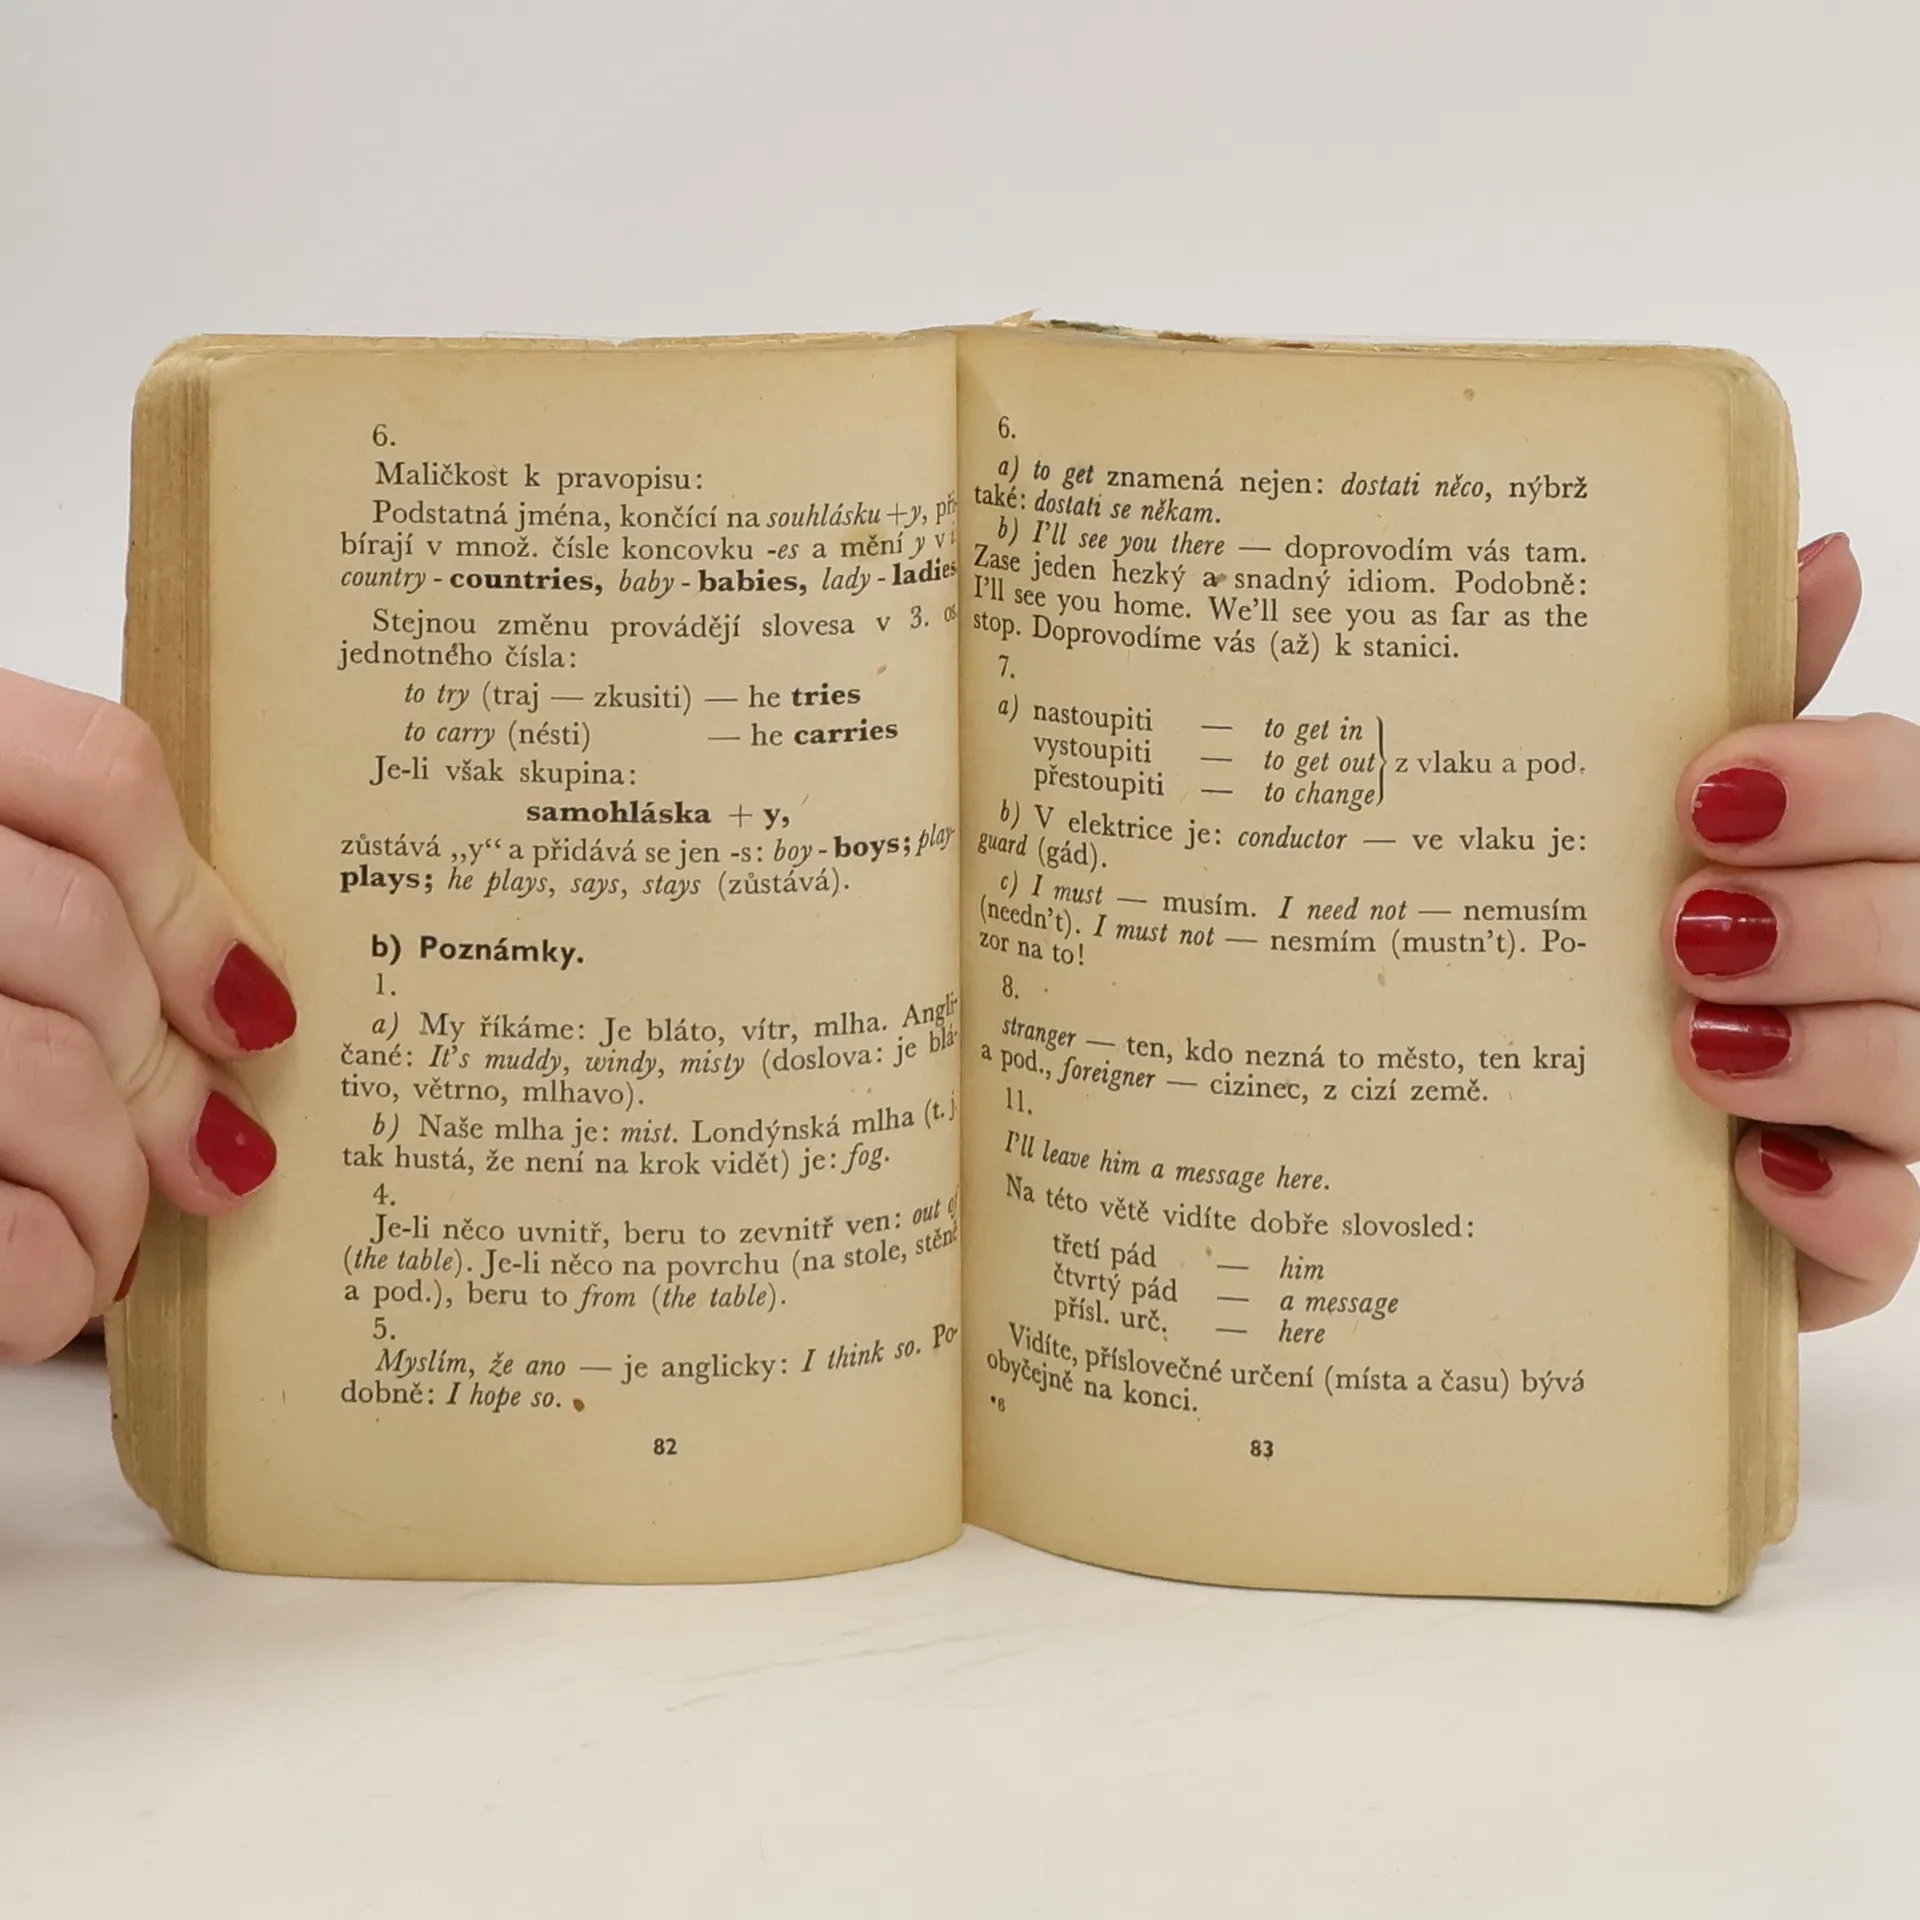 6.
Maličkost k pravopisu:
Podstatná jména, končící na souhlásku + y, při-
bírají v množ. čísle koncovku -es a mění y v i
country - countries, baby - babies, lady - ladies
Stejnou změnu provádějí slovesa v 3. os
jednotného čísla:
to try (traj — zkusiti) — he tries
to carry (nésti) — he carries
Je-li však skupina:
samohláska + y,
zůstává „y“ a přidává se jen -s: boy - boys; play-
plays; he plays, says, stays (zůstává).
b) Poznámky.
1.
a) My říkáme: Je bláto, vítr, mlha. Angli-
čané: It's muddy, windy, misty (doslova: je blá-
tivo, větrno, mlhavo).
b) Naše mlha je: mist. Londýnská mlha (t. j.
tak hustá, že není na krok vidět) je: fog.
4.
Je-li něco uvnitř, beru to zevnitř ven: out of
(the table). Je-li něco na povrchu (na stole, stěně
a pod.), beru to from (the table).
5.
Myslím, že ano — je anglicky: I think so. Po-
dobně: I hope so.
82
6.
a) to get znamená nejen: dostati něco, nýbrž
také: dostati se někam.
b) I'll see you there — doprovodím vás tam.
Zase jeden hezký a snadný idiom. Podobně:
I'll see you home. We'll see you as far as the
stop. Doprovodíme vás (až) k stanici.
7.
a) nastoupiti — to get in
vystoupiti — to get out } z vlaku a pod.
přestoupiti — to change
b) V elektrice je: conductor — ve vlaku je:
guard (gád).
c) I must — musím. I need not — nemusím
(needn't). I must not — nesmím (mustn't). Po-
zor na to!
8.
stranger — ten, kdo nezná to město, ten kraj
a pod., foreigner — cizinec, z cizí země.
11.
I'll leave him a message here.
Na této větě vidíte dobře slovosled:
třetí pád — him
čtvrtý pád — a message
přísl. urč. — here
Vidíte, příslovečné určení (místa a času) bývá
obyčejně na konci.
*6
83